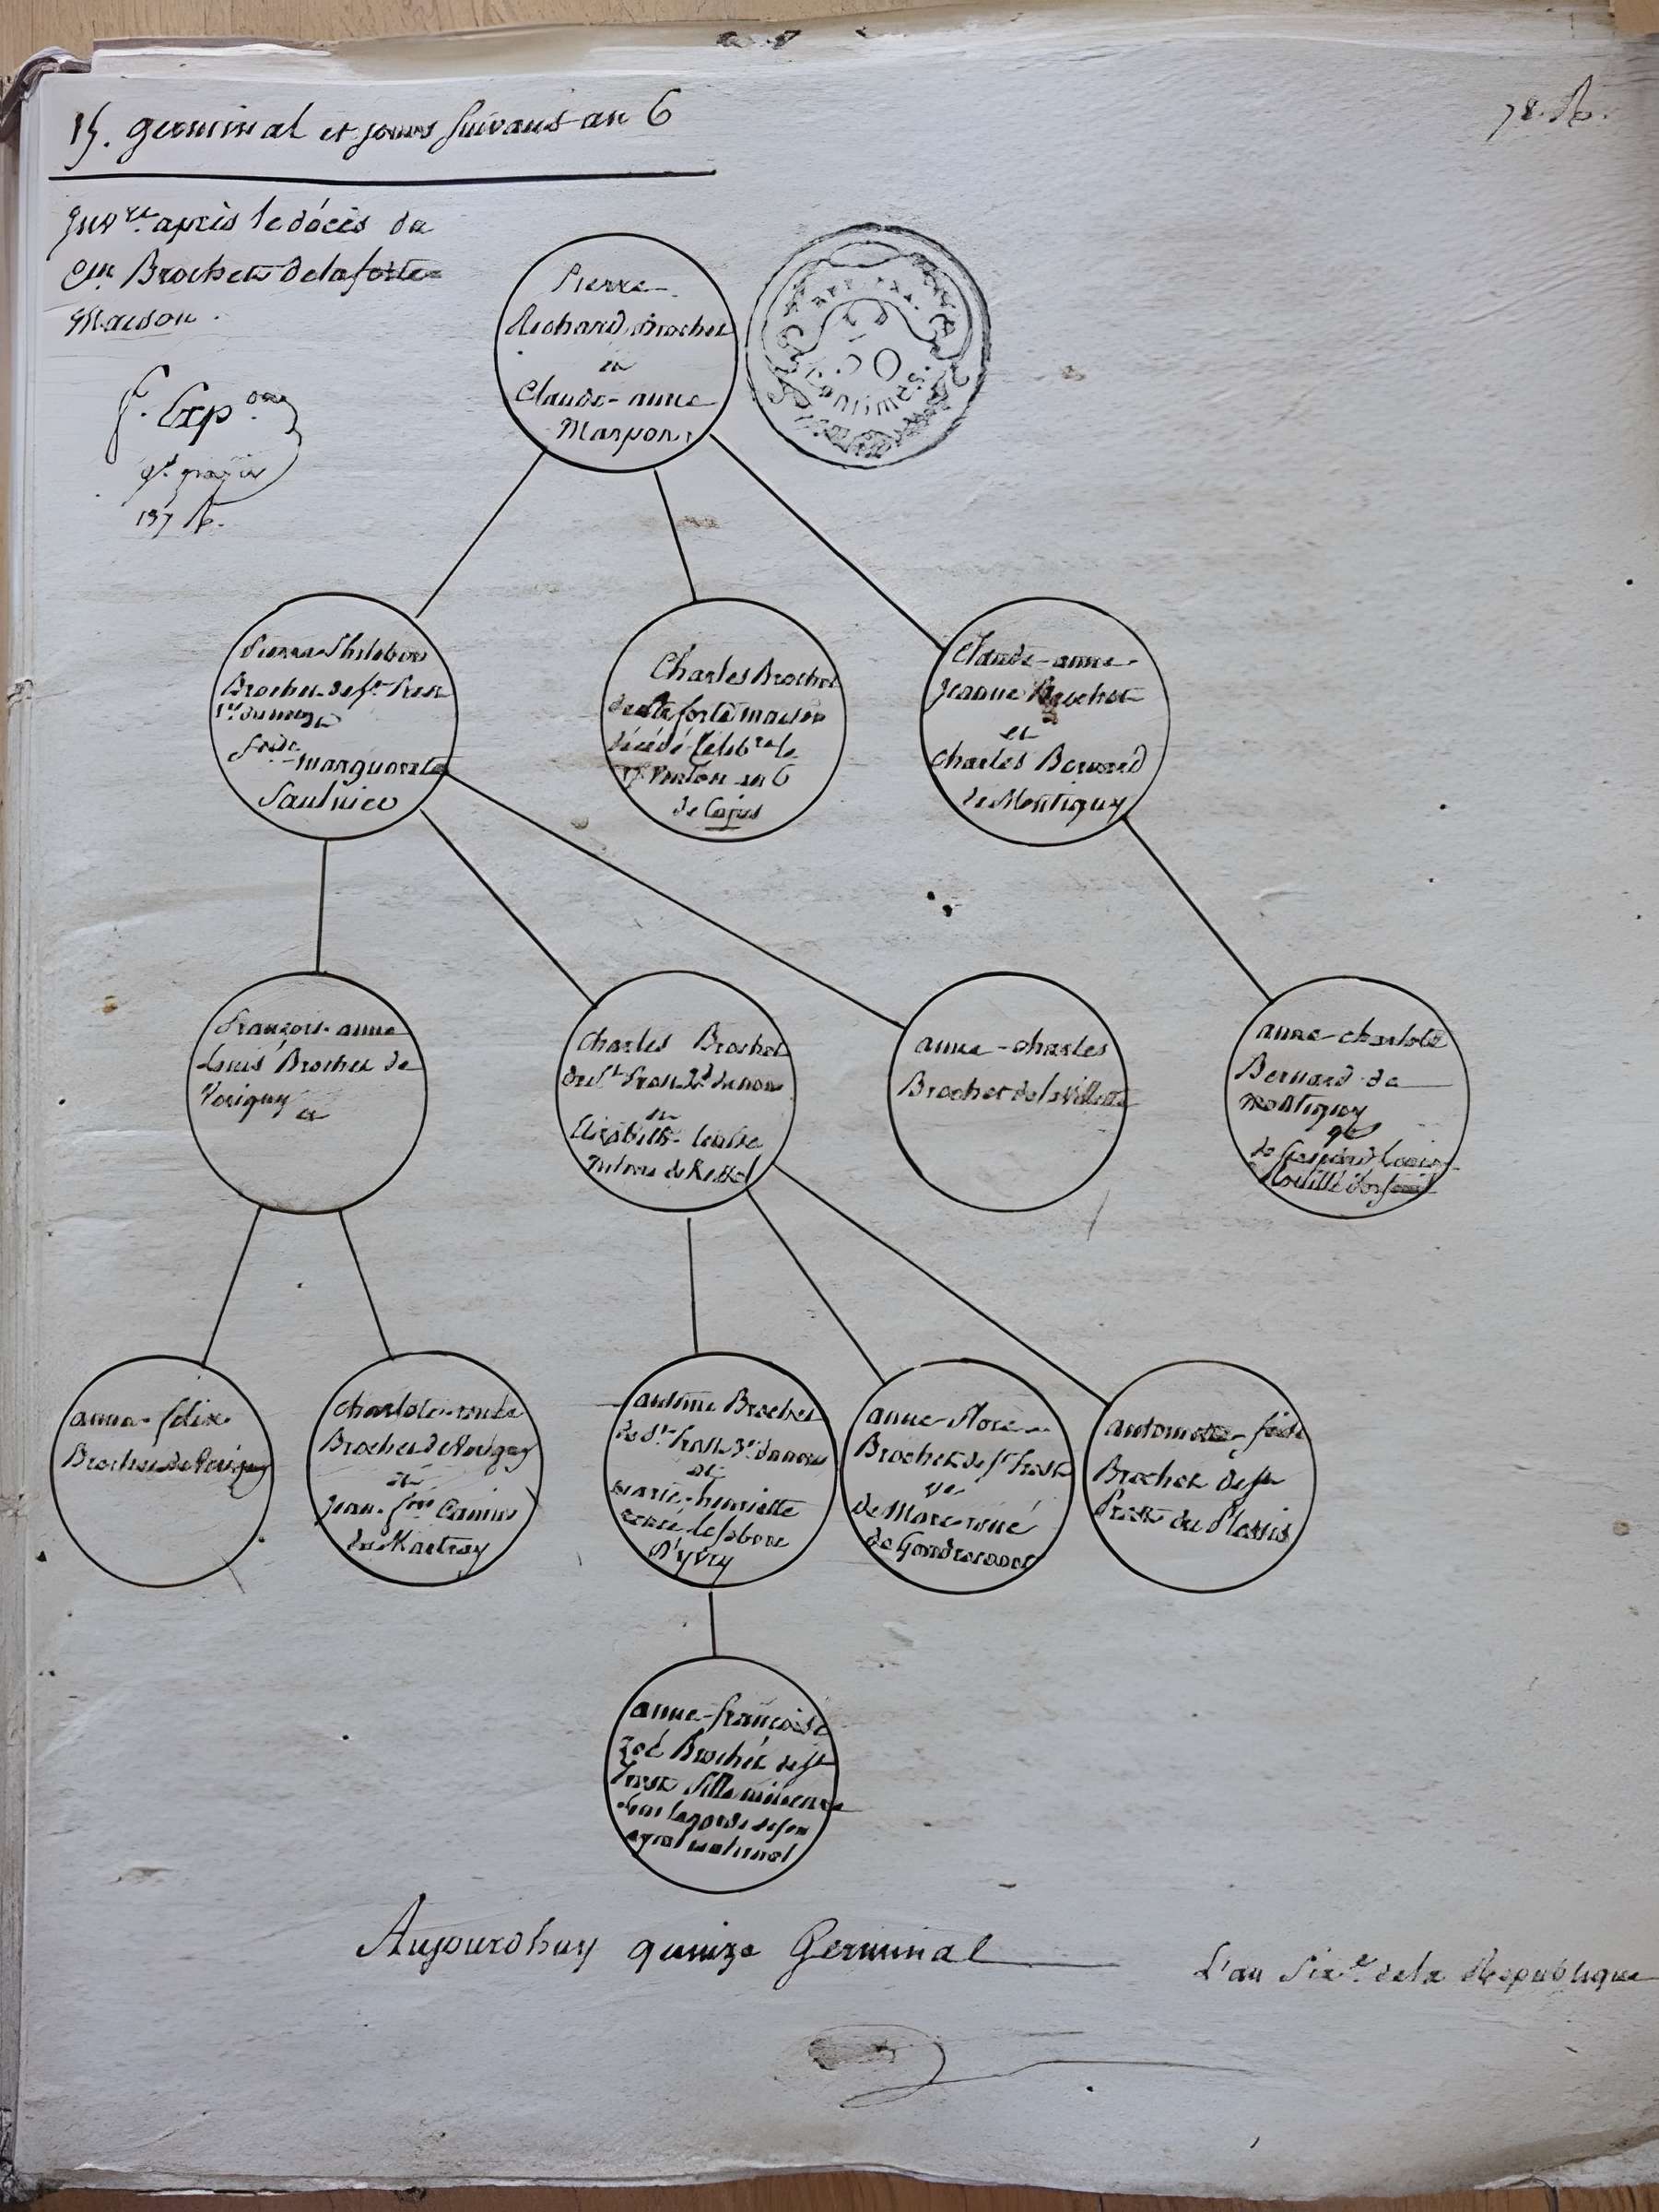 15. germinal et jours suivans an 6
78. R.
Inv.re après le décès du
Cen Brochet delaforte=
Maison.
f. Exp.on
137 R.
Pierre
Richard Brochet
et
Claude-anne
Marpon
50
Centimes
Pierre Philebert
Brochet de St Prest
1er du nom et
marguerite
Saulnier
Charles Brochet
de la forte maison
décédé Célib.re le
ventôse an 6
de Cujus
Claude-anne
jeanne Brochet
et
Charles Bernard
de Montigny
françois-anne
Louis Brochet de
Verigny et
Charles Brochet
de St Prest 2d du nom
et
Elisabeth
anne-charles
Brochet de la Villette
anne-charlote
Bernard de
montigny
de
anne-felix
Brochet de Verigny
charlote
Brochet de Verigny
et
jean Camus
du Martroy
antoine Brochet
de St Prest 3e du nom
et
marie-henriette
renée lefebvre
D'yvry
anne-flore
Brochet de St Prest
de Marc-rené
de
antoinette-
Brochet de St
Prest du Plessis
anne-françoise
zoé Brochet de St
Prest fille mineure
sous la garde de son
ayeul maternel
Aujourdhuy quinze Germinal
L'an Six.e de la République